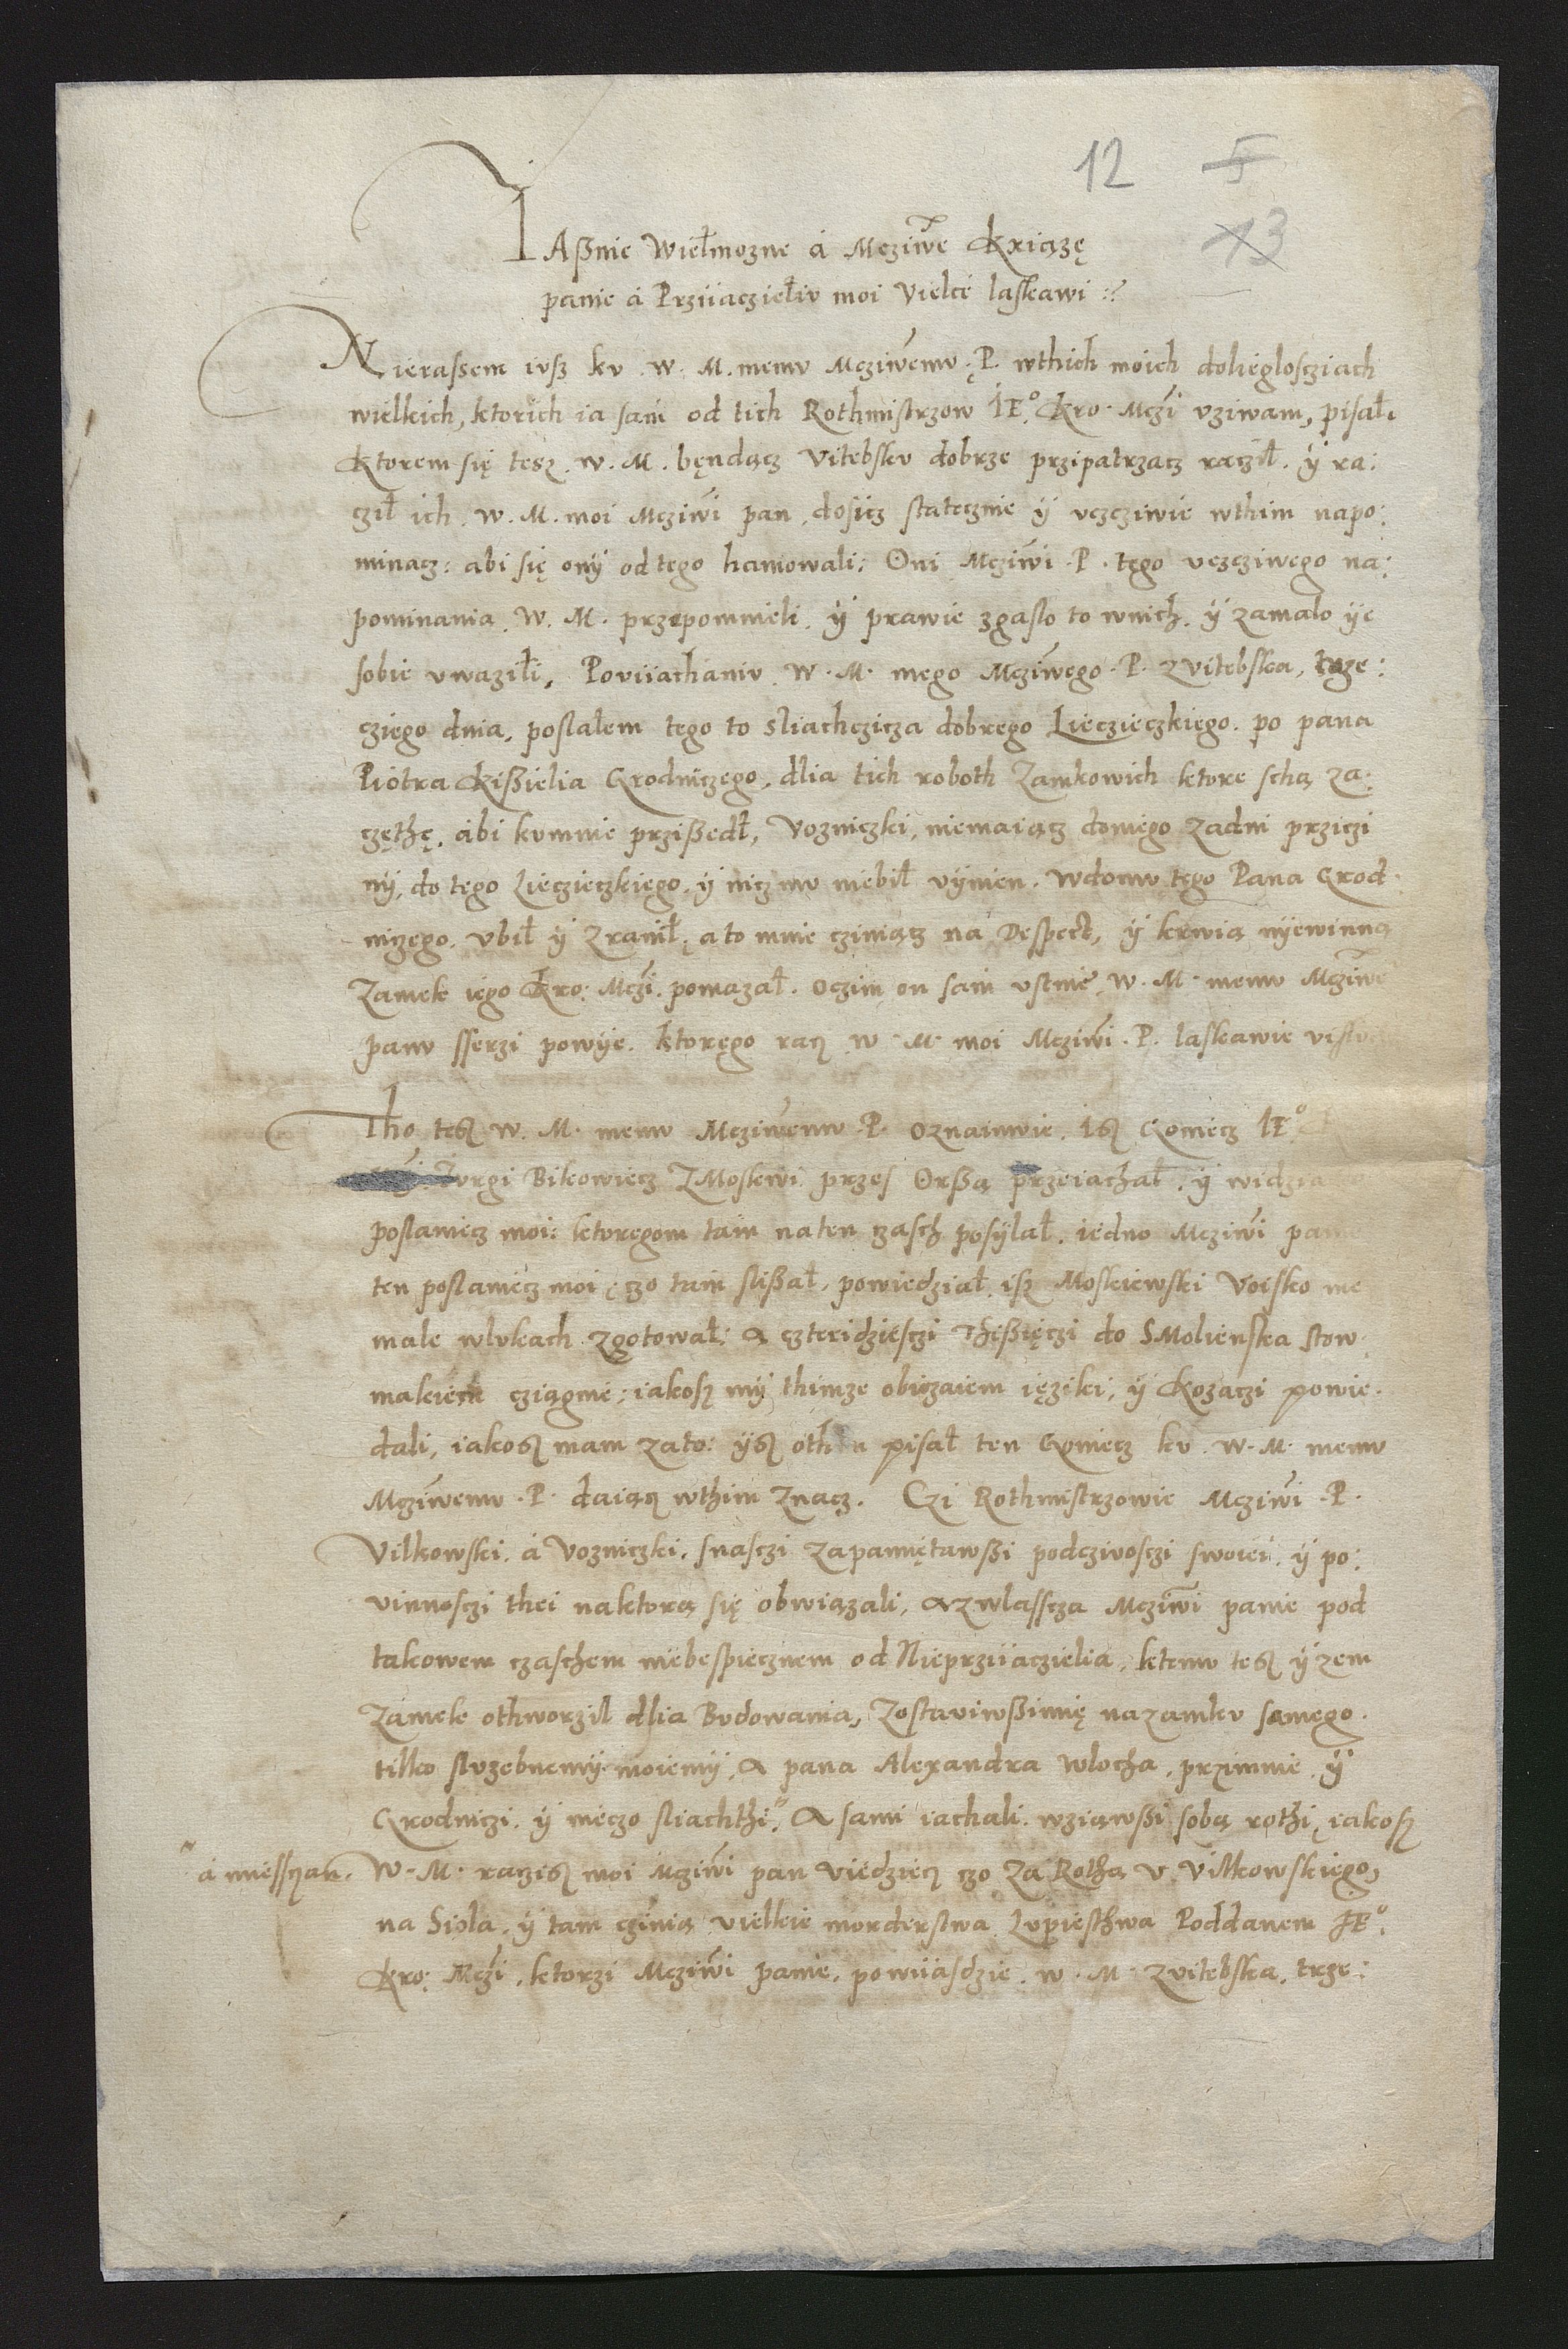 12 5
13
IAßnie Wiełmozne á Mcziwe Kxiązę
panie á Prziiaczieliv moi Vielcé laskawi :~
Nierassem ivß kv w. M. memv Mcziwemv P. wthich moich dolieglosciach
wielkich, ktorich ia sam od tich Rothmistrzow IE° Kro. Mczi vziwam, pisał.
Ktorem się tesz w. M. będącz Vitebskv dobrze przipatrzacz racził. ÿ ra:
cził ich w. M. moi Mcziwi pan dosicz statecznie ÿ vczcziwie wthim napo:
minacz: abi się onÿ od tego hamowali: Oni Mcziwi P. tego vczcziwego na:
pominania W. M. przepomnieli ÿ prawie zgaslo to wnich. ÿ zamalo ÿe
sobie vwazili, Poviiachaniv W. M. mego Mcziwego P. zVitebska, trze:
cziego dnia, poslalem tego to sliachczicza dobrego Liecziczkiego. po pana
Piotra Kißielia Grodniczego, dlia tich roboth Zamkowich ktore schą za:
częthę. abi kvmnie przißedł, Vozniczki, niemaiącz doniego zadni przizi
nÿ, do tego Liecziczkiego, ÿ niczmv niebił vÿnien. wdomv tego Pana Grod:
niczego. vbił ÿ zranił, a to mnie cziniącz na Despect, ÿ krwią nÿewinną
Zamek iego Kro: Mczi. pomazał. oczim on sam vstnie w. M. memv Mcziwe
panv sserzi powÿe. ktorego racz w. M. moi Mcziwi P. laskawie visłv
Tho tesz w. M. memv Mcziwemv P. oznaimvie. Isz Goniecz IE°
Ivrgi Bikowiecz ZMoskwi przes Orßą przeiachał. ÿ widzia
poslaniecz moi: ktoregom tam naten czasch posÿlał. iedno Mcziwi pan
ten poslaniecz moi, czo tam slißał, powiedział. isz Moskiewski Voisko nie
male wlvkach zgotował: a czteridziesczi Thißięczi do SMolienska stow
makiem cziągnie: iakosz mÿ thimze obiczaiem ięziki, ÿ Kozaczi powie:
dali, iakosz mam zato: ÿsz oth n pisał ten Goniecz kv w. M. memv
Mcziwemv P. daiącz wthim znacz. Czi Rothmistrzowie Mcziwi P.
Vilkowski. á Vozniczki, snasczi zapamiętawßi podcziwosczi swoiei. ÿ po:
vinnosczi thei naktorą się obwiązali, azwlasscza Mcziwi panie pod
takowem czaschem niebespiecznem od Nieprziiaczielia, ktemv tesz ÿzem
Zamek othworził dlia Bvdowania, zostaviwßimię nazamkv samego.
tilko slvzebnemÿ moiemÿ, a pana Alexandra wlocha, przimnie ÿ
Grodniczi. ÿ nieczo sliachthi,~ a sami iachali. wziąwßi sobą rothi, iakosz
~ á miesczan. W. M. raczisz moi Mcziwi pan viedziecz czo za Rothą v Vilkowskiego,
na Siola, ÿ tam czinią vielkie morderstwa Lvpiesthwa Poddanem IE°
Kro: Mczi, ktorzi Mcziwi panie. powiiasdzie w. M. zvitebska, trze: